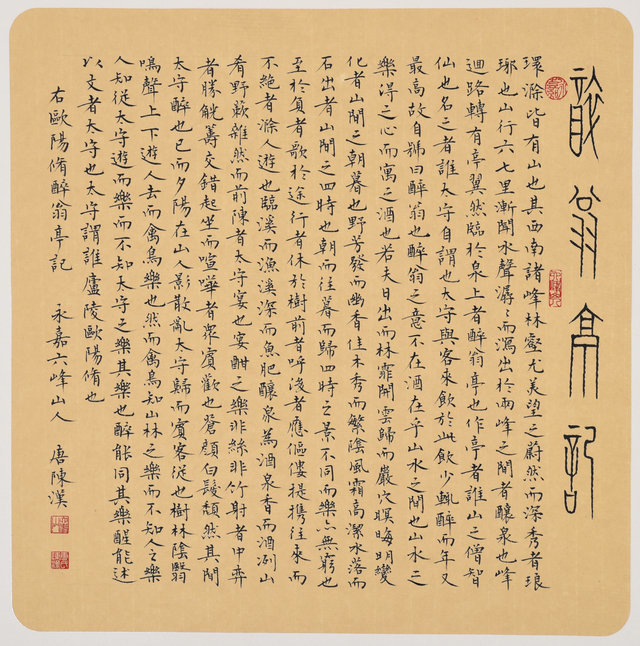 醉翁亭記
環滁皆有山也其西南諸峰林壑尤美望之蔚然而深秀者琅
琊也山行六七里漸聞水聲潺〻而瀉出於兩峰之間者釀泉也峰
迴路轉有亭翼然臨於泉上者醉翁亭也作亭者誰山之僧智
仙也名之者誰太守自謂也太守與客來飲於此飲少輒醉而年又
最高故自號曰醉翁也醉翁之意不在酒在乎山水之間也山水之
樂得之心而寓之酒也若夫日出而林霏開雲歸而巖穴暝晦明變
化者山間之朝暮也野芳發而幽香佳木秀而繁陰風霜高潔水落而
石出者山間之四時也朝而往暮而歸四時之景不同而樂亦無窮也
至於負者歌於途行者休於樹前者呼後者應傴僂提攜往來而
不絕者滁人遊也臨溪而漁溪深而魚肥釀泉為酒泉香而酒冽山
肴野蔌雜然而前陳者太守宴也宴酣之樂非絲非竹射者中弈
者勝觥籌交錯起坐而喧嘩者眾賓歡也蒼顏白髮頹然其間
太守醉也已而夕陽在山人影散亂太守歸而賓客從也樹林陰翳
鳴聲上下遊人去而禽鳥樂也然而禽鳥知山林之樂而不知人之樂
人知從太守遊而樂而不知太守之樂其樂也醉能同其樂醒能述
以文者太守也太守謂誰廬陵歐陽脩也
右歐陽脩醉翁亭記 永嘉六峰山人 唐陳漢